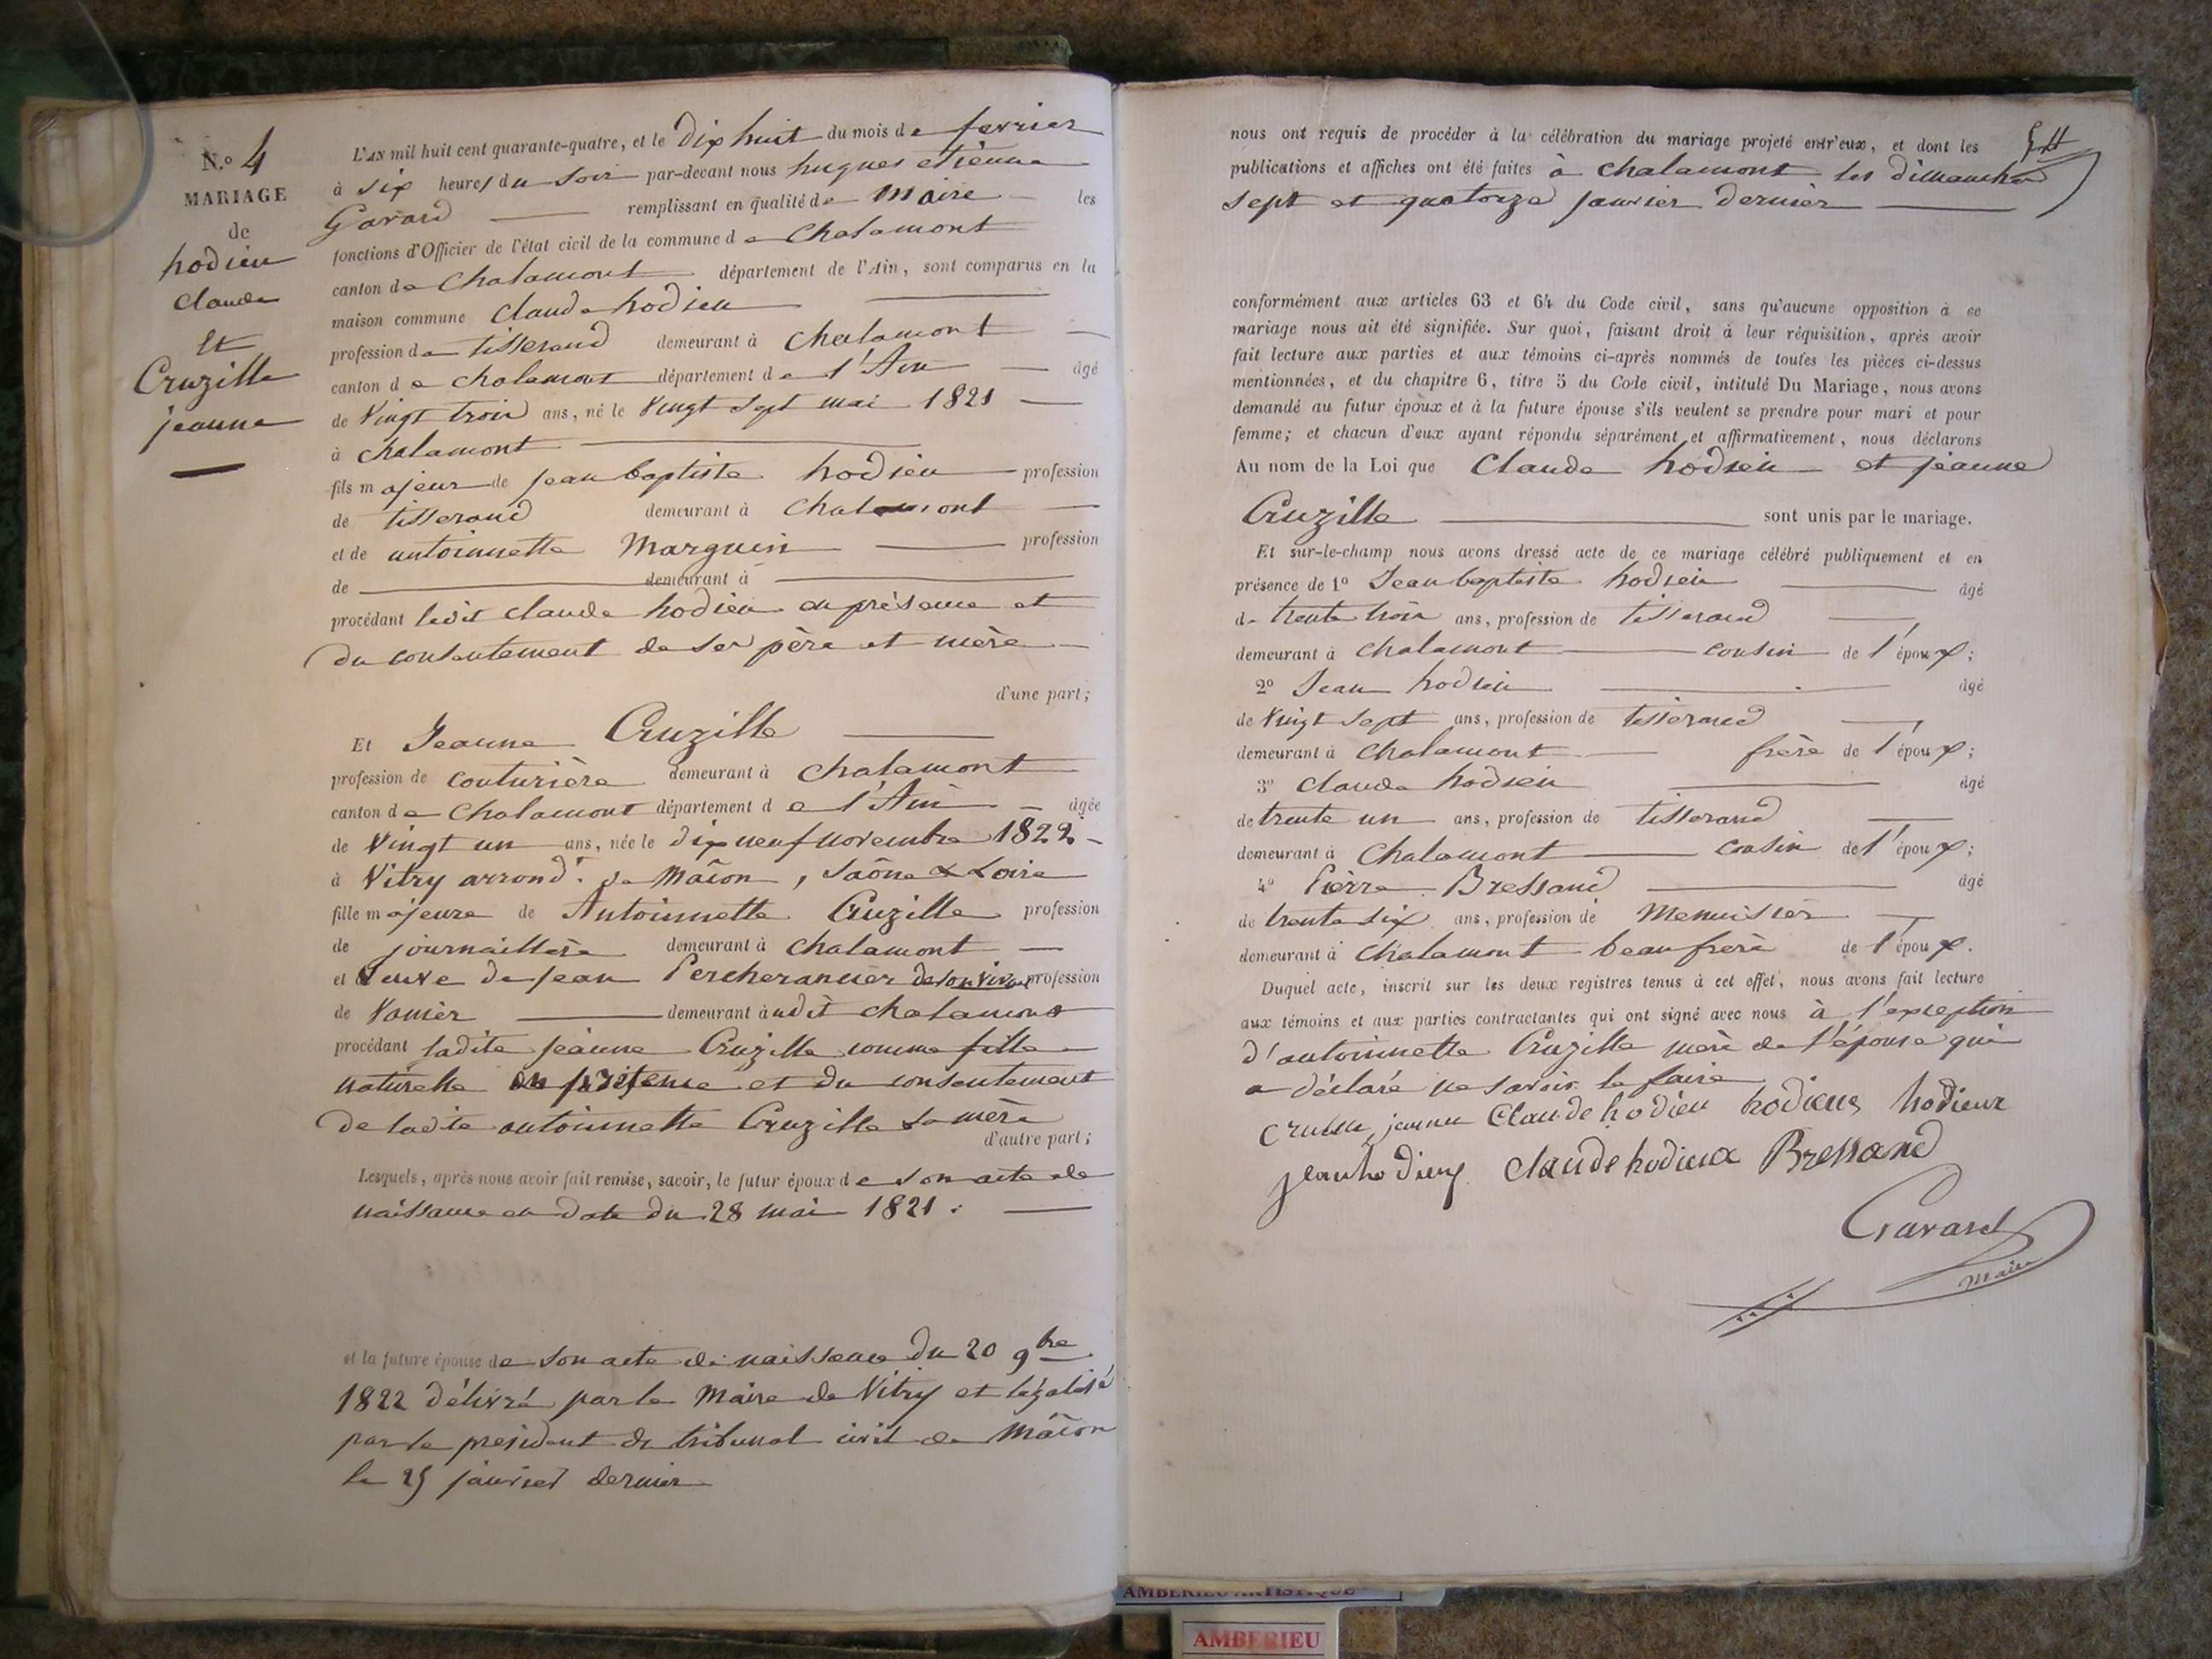 N.o 4
MARIAGE
de
hodieu
claude
Et
Cruzille
jeanne
L'AN mil huit cent quarante-quatre, et le dix huit du mois de fevrier
à six heures du soir par-devant nous hugues etienne
Gavard remplissant en qualité de maire les
fonctions d'Officier de l'état civil de la commune de chalamont
canton de chalamont département de l'Ain, sont comparus en la
maison commune claude hodieu
profession de tisserand demeurant à chalamont
canton de chalamont département de l'Ain âgé
de vingt trois ans, né le vingt sept mai 1821
à chalamont
fils majeur de jean baptiste hodieu profession
de tisserand demeurant à chalamont
et de antoinette Marguin profession
de demeurant à
procédant ledit claude hodieu en présence et
du consentement de ses père et mère
d'une part;
Et Jeanne Cruzille
profession de couturière demeurant à chalamont
canton de chalamont département de l'Ain âgée
de vingt un ans, née le dix neuf novembre 1822
à Vitry arrond.t de Mâcon, Saône & Loire
fille majeure de Antoinette Cruzille profession
de journaillère demeurant à chalamont
et veuve de jean Percherancier de son vivant profession
de Vanier demeurant audit chalamont
procédant ladite jeanne Cruzille comme fille
naturelle en présence et du consentement
de ladite antoinette Cruzille sa mère
d'autre part;
Lesquels, après nous avoir fait remise, savoir, le futur époux de son acte de
naissance en date du 28 mai 1821.
et la future épouse de son acte de naissance du 20 9bre
1822 délivré par le Maire de Vitry et légalisé
par le president du tribunal civil de Mâcon
le 25 janvier dernier
nous ont requis de procéder à la célébration du mariage projeté entr'eux, et dont les
publications et affiches ont été faites à chalamont les dimanches
sept et quatorze janvier dernier
conformément aux articles 63 et 64 du Code civil, sans qu'aucune opposition à ce
mariage nous ait été signifiée. Sur quoi, faisant droit à leur réquisition, après avoir
fait lecture aux parties et aux témoins ci-après nommés de toutes les pièces ci-dessus
mentionnées, et du chapitre 6, titre 5 du Code civil, intitulé Du Mariage, nous avons
demandé au futur époux et à la future épouse s'ils veulent se prendre pour mari et pour
femme; et chacun d'eux ayant répondu séparément et affirmativement, nous déclarons
Au nom de la Loi que Claude hodieu et jeanne
Cruzille sont unis par le mariage.
Et sur-le-champ nous avons dressé acte de ce mariage célébré publiquement et en
présence de 1o Jean baptiste hodieu âgé
de trente trois ans, profession de tisserand
demeurant à chalamont cousin de l'époux;
2o Jean hodieu âgé
de vingt sept ans, profession de tisserand
demeurant à chalamont frère de l'époux;
3o claude hodieu âgé
de trente un ans, profession de tisserand
demeurant à chalamont cousin de l'époux;
4o Pierre Bressand âgé
de trente six ans, profession de menuisier
demeurant à chalamont beau frère de l'époux.
Duquel acte, inscrit sur les deux registres tenus à cet effet, nous avons fait lecture
aux témoins et aux parties contractantes qui ont signé avec nous à l'exception
d'antoinette Cruzille mère de l'épouse qui
a déclaré ne savoir le faire
jeanne Claude hodieu hodieux hodieux
jean hodieux claude hodieux Bressand
Gavard
maire
AMBERIEU ARTISTIQUE
AMBERIEU